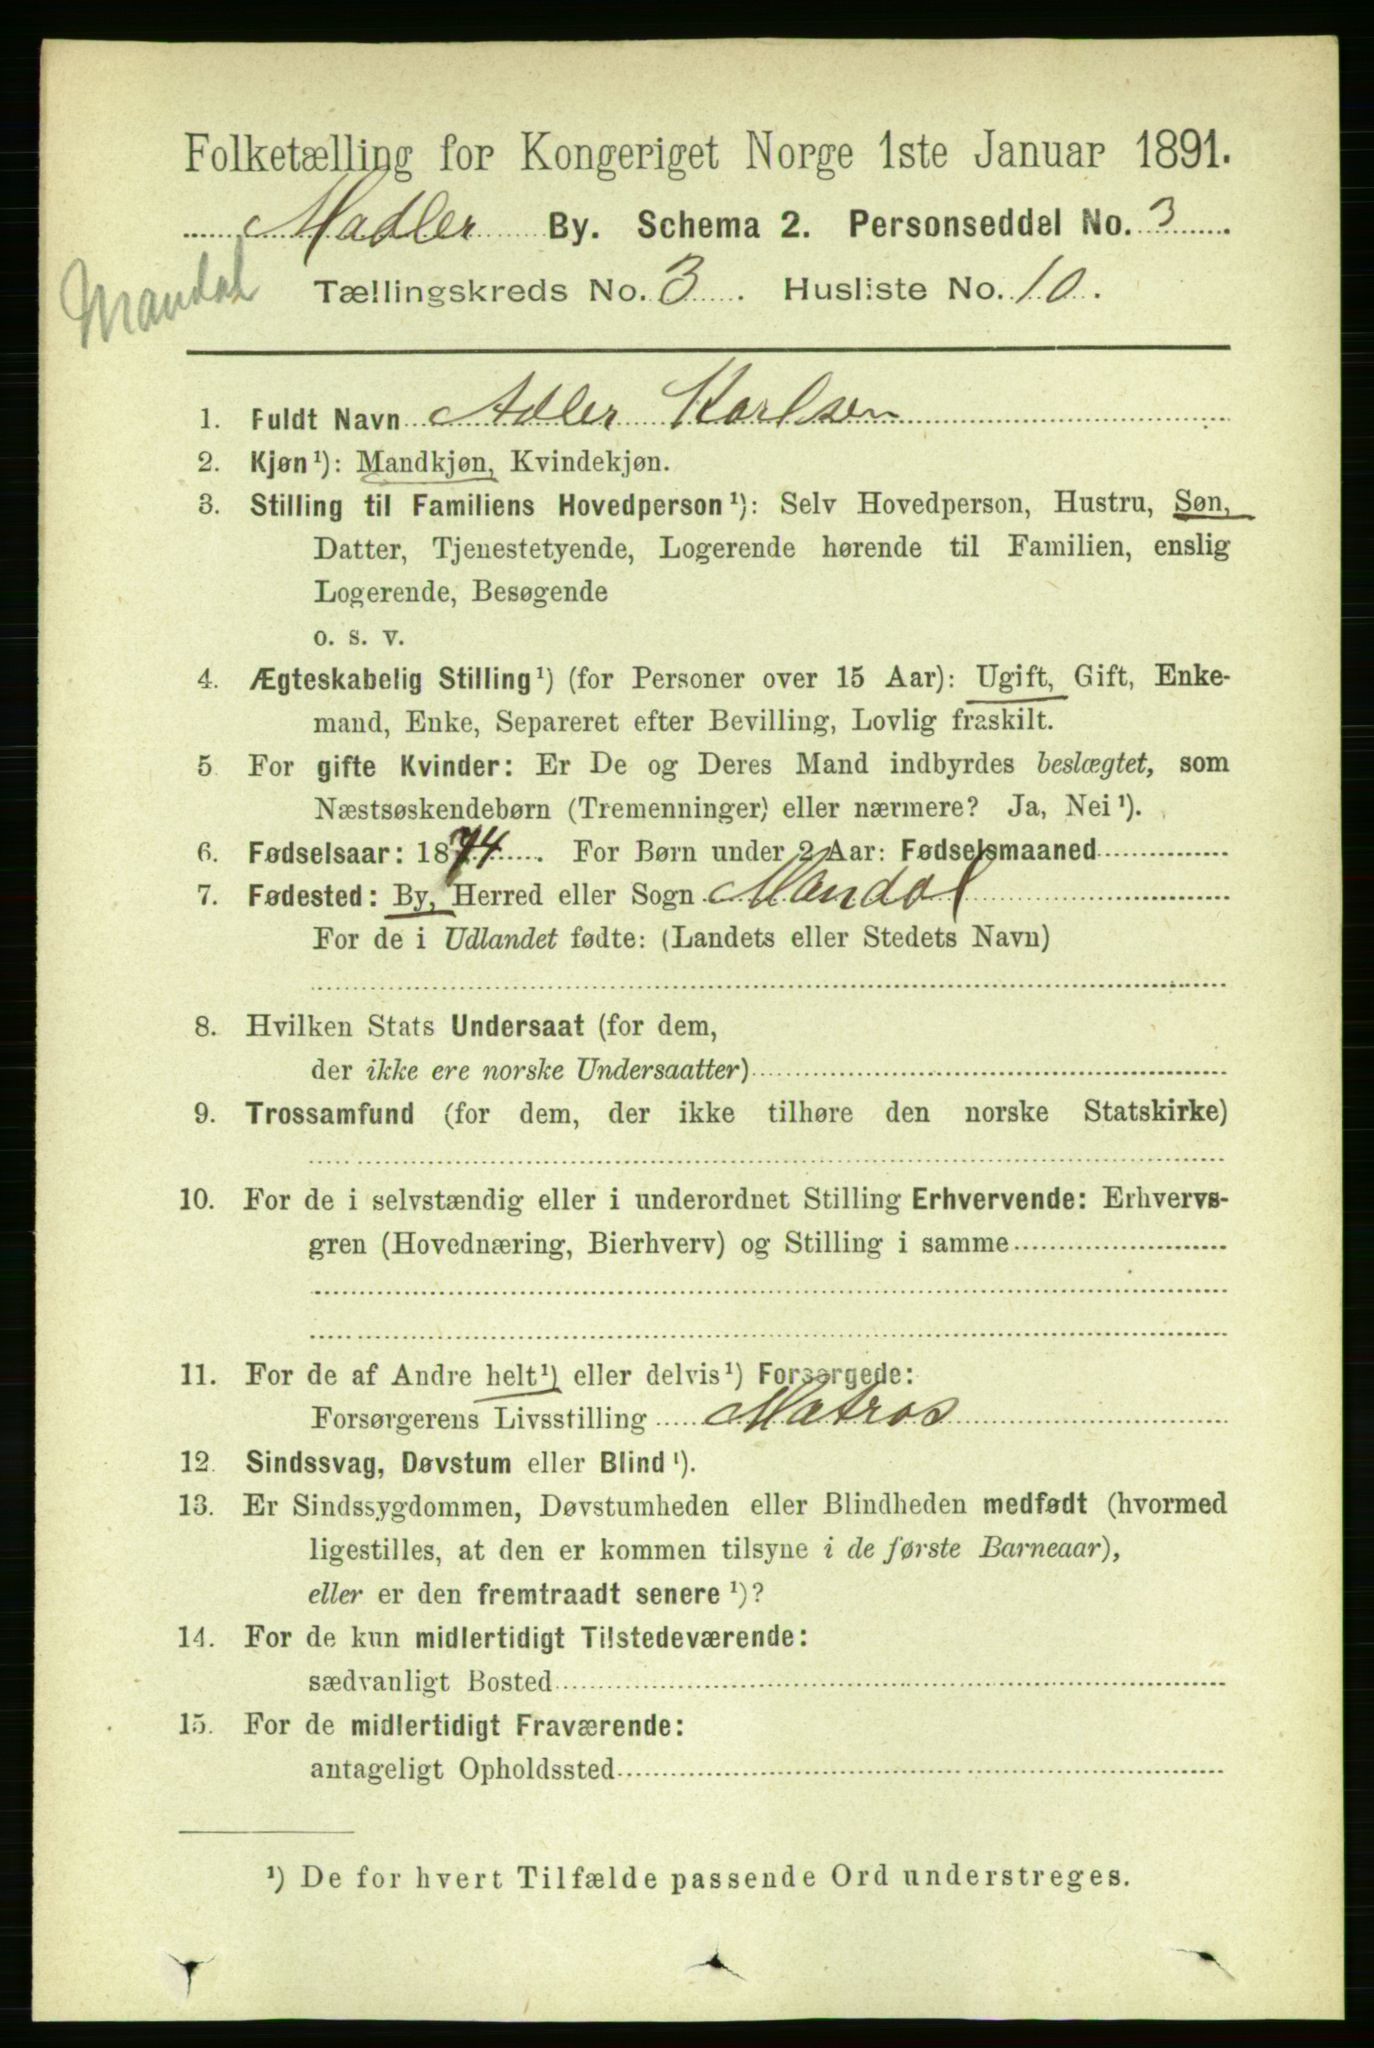 Folketælling for Kongeriget Norge 1ste Januar 1891.
Madler By. Schema 2. Personseddel No. 3.
Mandal
Tællingskreds No. 3. Husliste No. 10.
1. Fuldt Navn Adler Karlsen
2. Kjøn¹): Mandkjøn, Kvindekjøn.
3. Stilling til Familiens Hovedperson¹): Selv Hovedperson, Hustru, Søn,
Datter, Tjenestetyende, Logerende hørende til Familien, enslig
Logerende, Besøgende
o. s. v.
4. Ægteskabelig Stilling¹) (for Personer over 15 Aar): Ugift, Gift, Enke-
mand, Enke, Separeret efter Bevilling, Lovlig fraskilt.
5. For gifte Kvinder: Er De og Deres Mand indbyrdes beslægtet, som
Næstsøskendebørn (Tremenninger) eller nærmere? Ja, Nei¹).
6. Fødselsaar: 1874. For Børn under 2 Aar: Fødselsmaaned
7. Fødested: By, Herred eller Sogn Mandal
For de i Udlandet fødte: (Landets eller Stedets Navn)
8. Hvilken Stats Undersaat (for dem,
der ikke ere norske Undersaatter)
9. Trossamfund (for dem, der ikke tilhøre den norske Statskirke)
10. For de i selvstændig eller i underordnet Stilling Erhvervende: Erhvervs-
gren (Hovednæring, Bierhverv) og Stilling i samme
11. For de af Andre helt¹) eller delvis¹) Forsørgede:
Forsørgerens Livsstilling Matros
12. Sindssvag, Døvstum eller Blind¹).
13. Er Sindssygdommen, Døvstumheden eller Blindheden medfødt (hvormed
ligestilles, at den er kommen tilsyne i de første Barneaar),
eller er den fremtraadt senere¹)?
14. For de kun midlertidigt Tilstedeværende:
sædvanligt Bosted
15. For de midlertidigt Fraværende:
antageligt Opholdssted
¹) De for hvert Tilfælde passende Ord understreges.